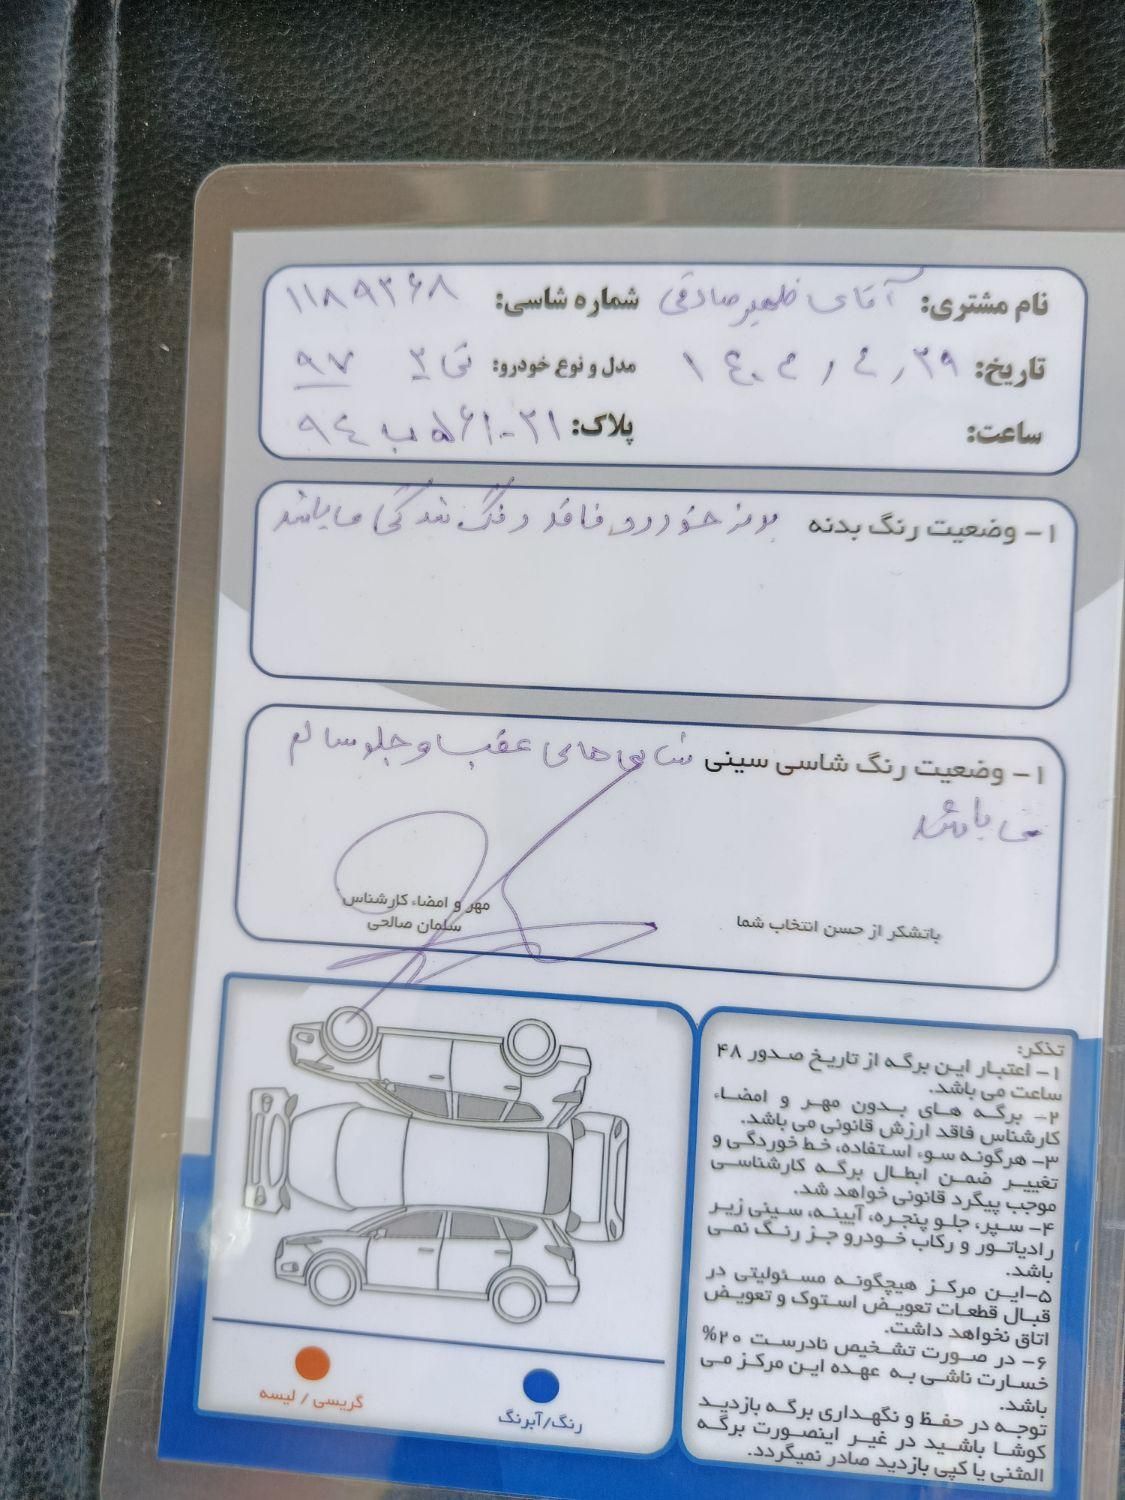 نام مشتری: آقای ظهیر صادقی شماره شاسی: ۱۱۸۹۳۶۸
تاریخ: ۱۴۰۴/۴/۲۹ مدل و نوع خودرو: ۹۷
ساعت: پلاک: ۲۱-۵۶۱ ب ۹۴
۱- وضعیت رنگ بدنه بدنه خودرو فاقد رنگ شدگی میباشد
۱- وضعیت رنگ شاسی سینی شاسی های عقب و جلو سالم
می باشد
باتشکر از حسن انتخاب شما
مهر و امضاء کارشناس
سلمان صالحی
تذکر:
۱- اعتبار این برگه از تاریخ صدور ۴۸
ساعت می باشد.
۲- برگه های بدون مهر و امضاء
کارشناس فاقد ارزش قانونی می باشد.
۳- هرگونه سوء استفاده، خط خوردگی و
تغییر ضمن ابطال برگه کارشناسی
موجب پیگرد قانونی خواهد شد.
۴- سپر، جلو پنجره، آیینه، سینی زیر
رادیاتور و رکاب خودرو جز رنگ نمی
باشد.
۵-این مرکز هیچگونه مسئولیتی در
قبال قطعات تعویض استوک و تعویض
اتاق نخواهد داشت.
۶- در صورت تشخیص نادرست ۲۰%
خسارت ناشی به عهده این مرکز می
باشد.
توجه در حفظ و نگهداری برگه بازدید
کوشا باشید در غیر اینصورت برگه
المثنی یا کپی بازدید صادر نمیگردد.
رنگ/آبرنگ
گریسی / لیسه